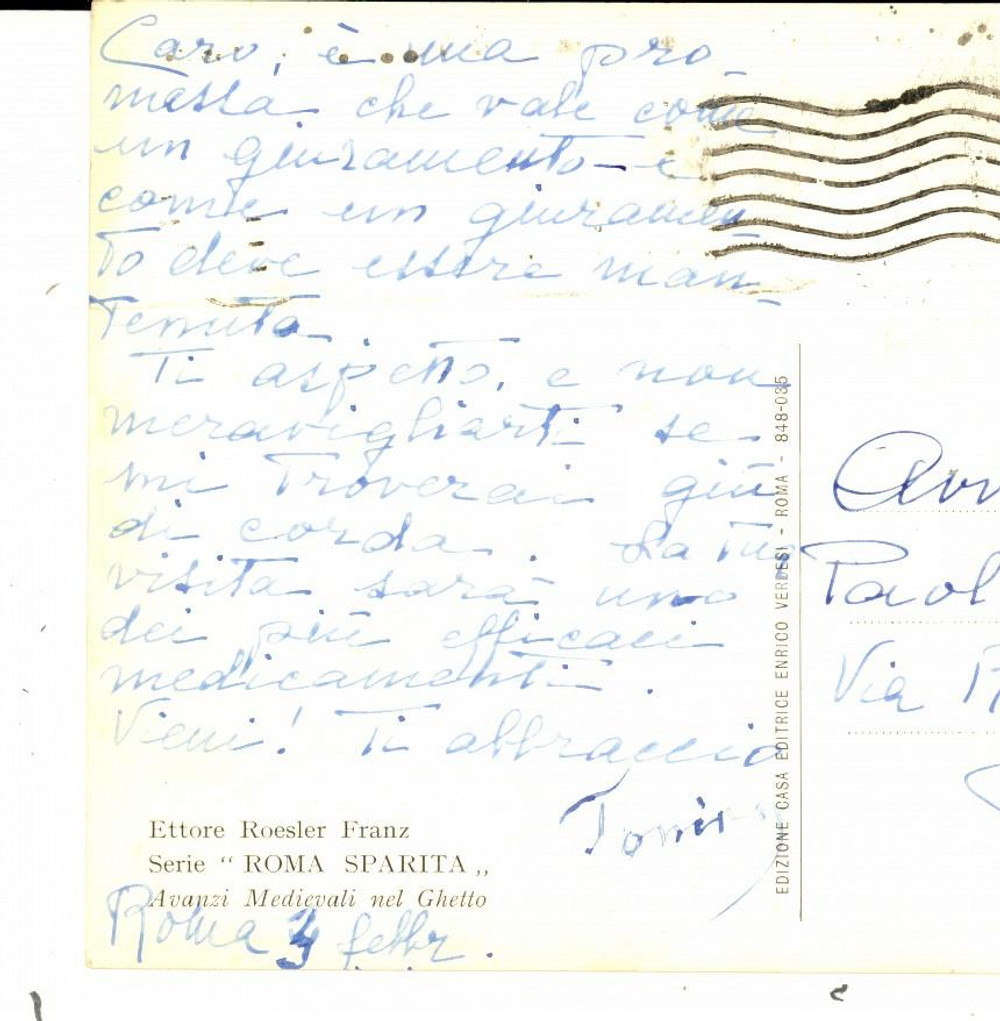 Caro, è una pro_
messa che vale come
un giuramento e
come un giuramen_
to deve essere man_
tenuta.
Ti aspetto, e non
meravigliarti se
mi troverai giù
di corda. La tua
visita sarà uno
dei più efficaci
medicamenti.
Vieni! Ti abbraccio
Ettore Roesler Franz
Serie “ ROMA SPARITA „
Avanzi Medievali nel Ghetto
Roma 3 febbr.
EDIZIONE CASA EDITRICE ENRICO VERDESI - ROMA - 848-035
Avv
Paol
Via